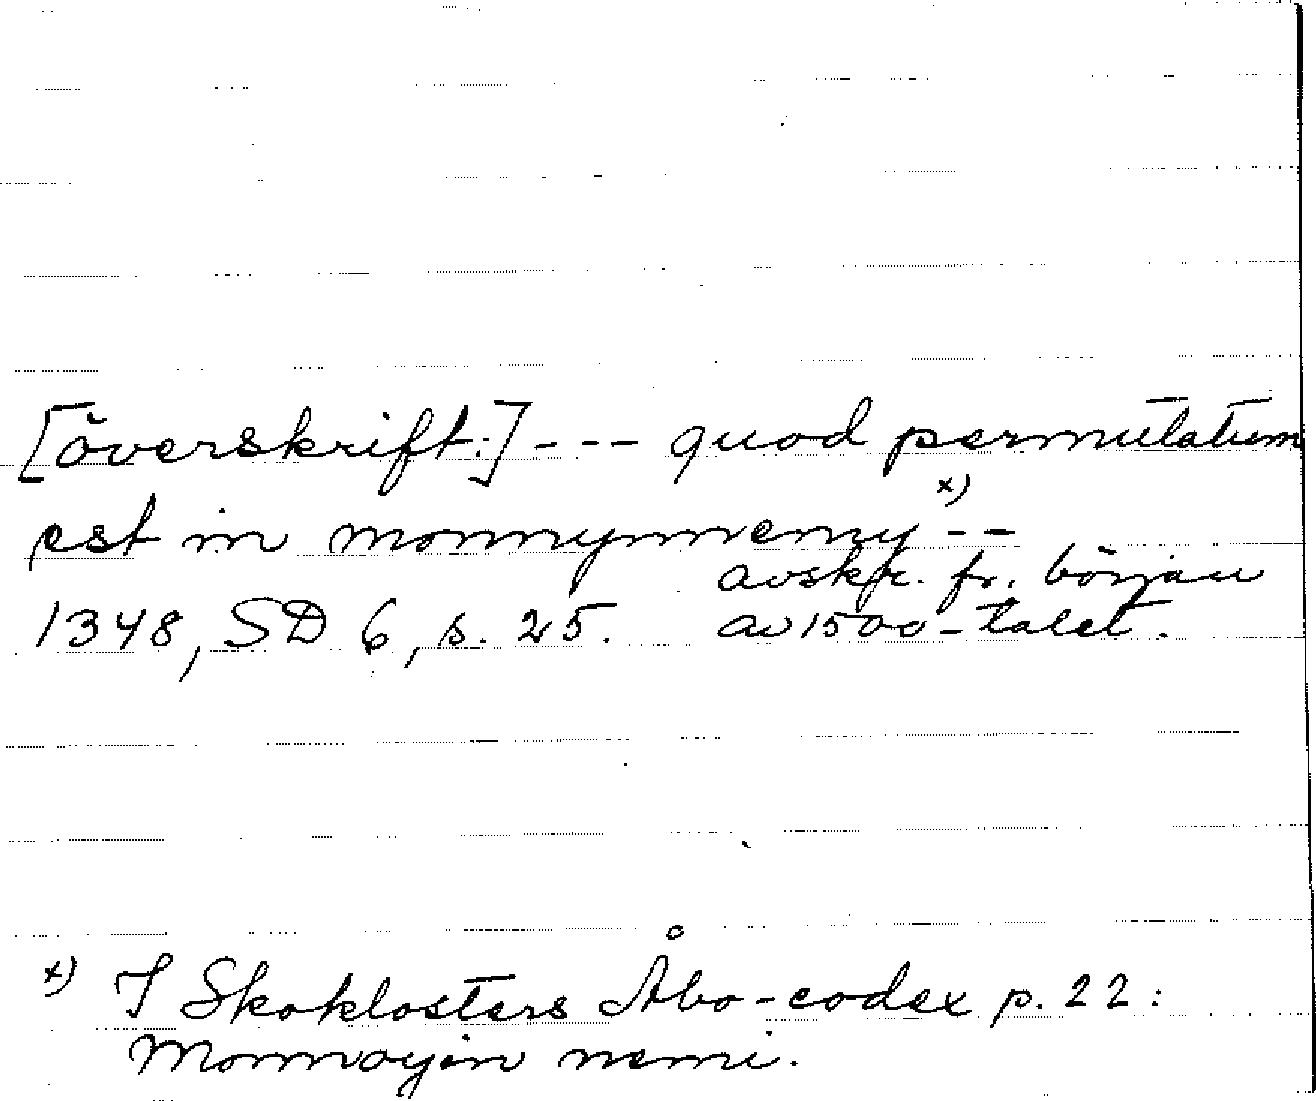 [överskrift:] --- quod permutatum
est in monnynnemy x) --
avskr. fr. början
1348, SD 6, s. 25. av 1500-talet.
x) I Skoklosters Åbo-codex p. 22:
Monnoyän nemi.